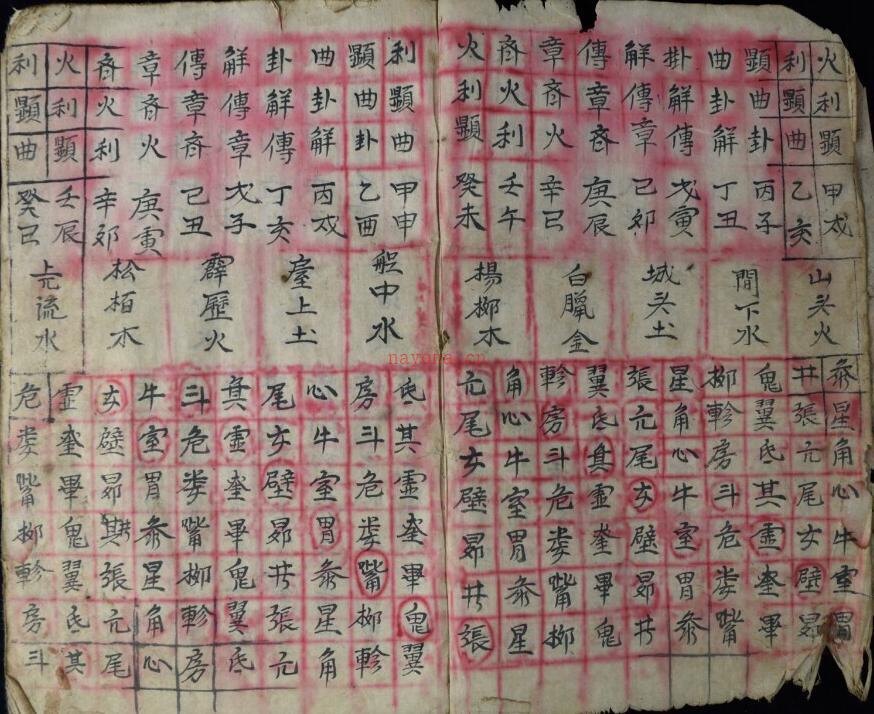 火利顯甲戌
利顯曲乙亥
顯曲卦丙子
曲卦解丁丑
掛解傳戊寅
解傳章己卯
傳章斉庚辰
章斉火辛巳
斉火利壬午
火利顯癸未
山头火
間下水
城头土
白臘金
楊柳木
参星角心牛室胃
井張亢尾女壁昴
鬼翼氐其虚奎畢
柳軫房斗危娄嘴
星角心牛室胃参
張亢尾女壁昴井
翼氐其虚奎畢鬼
軫房斗危娄嘴柳
角心牛室胃参星
亢尾女壁昴井張
利顯曲甲申
顯曲卦乙酉
曲卦解丙戌
卦解傳丁亥
解傳章戊子
傳章斉己丑
章斉火庚寅
斉火利辛卯
火利顯壬辰
利顯曲癸巳
舩中水
臺上土
霹歷火
松栢木
流水
氐其虚奎畢鬼翼
房斗危娄嘴柳軫
心牛室胃参星角
尾女壁昴井張亢
其虚奎畢鬼翼氐
斗危娄嘴柳軫房
牛室胃参星角心
女壁昴其井張亢尾
虚奎畢鬼翼氐其
危娄嘴柳軫房斗
nayone.cn